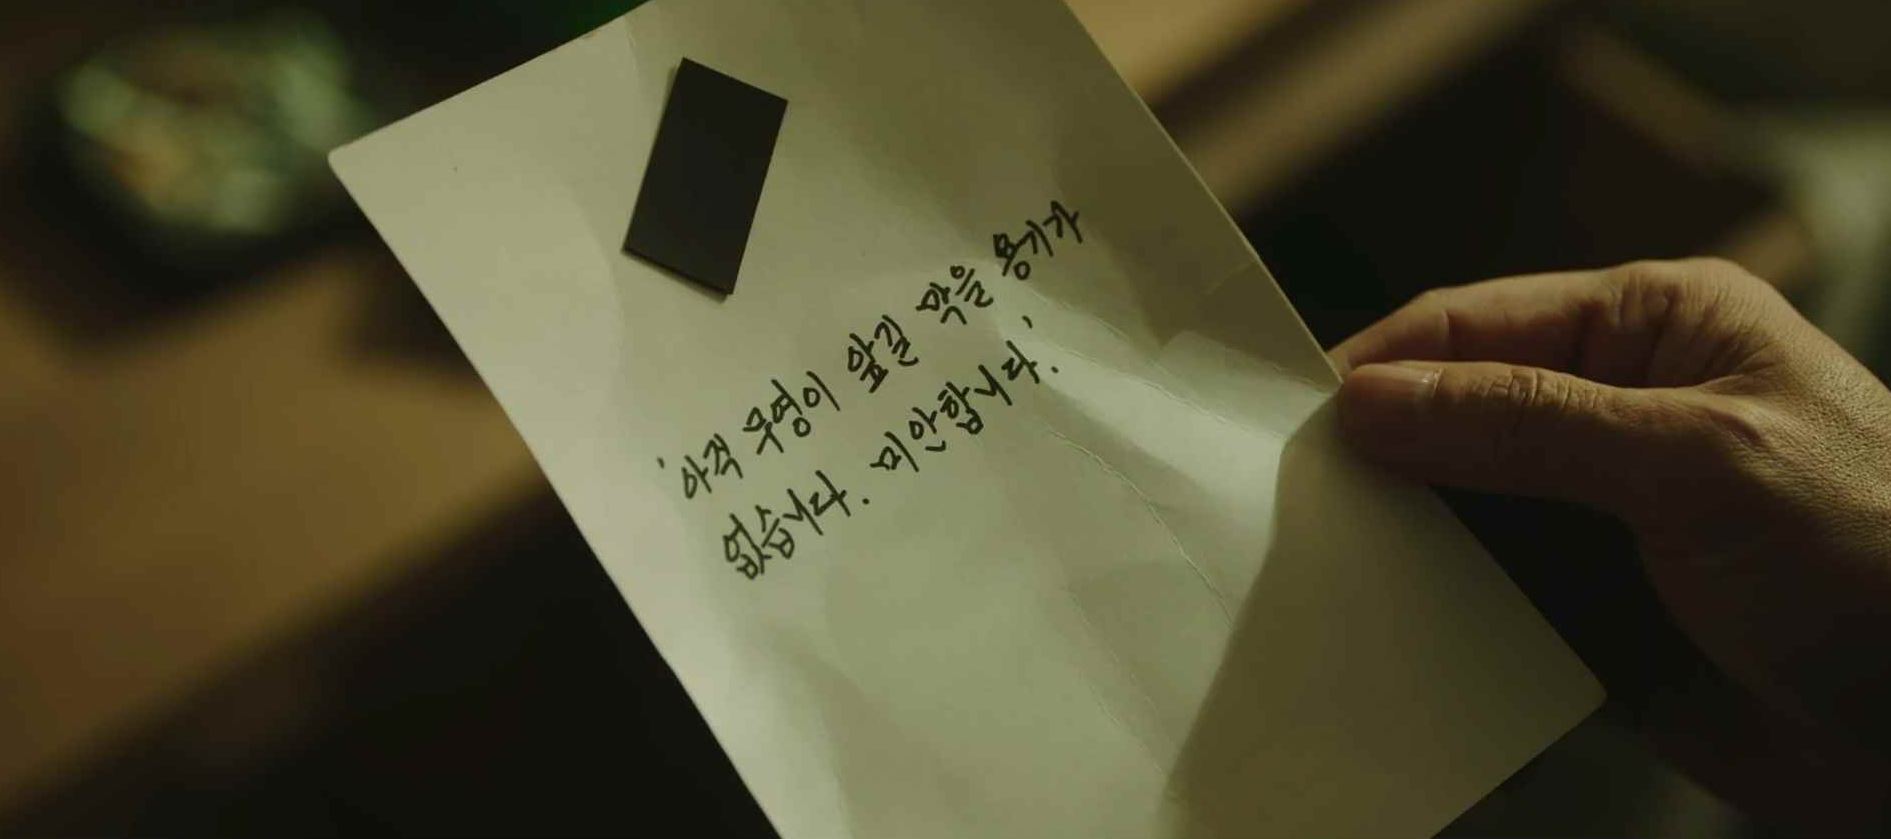 '아직 무영이 앞길 막을 용기가
없습니다. 미안합니다.'